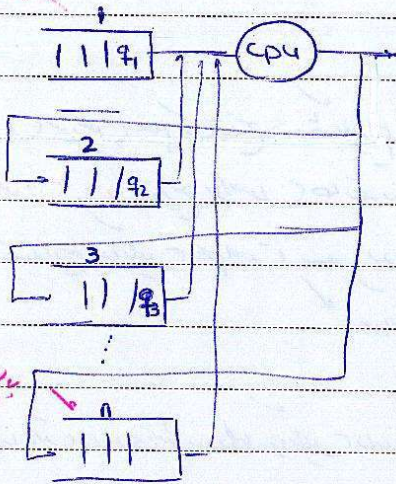 1
q1
cpu
2
q2
3
q3
n